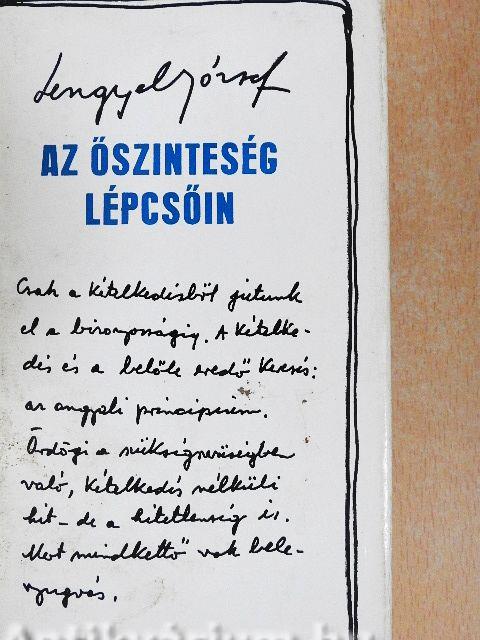 Lengyel József
AZ ŐSZINTESÉG
LÉPCSŐIN
Csak a kételkedésből jutunk
el a bizonyosságig. A kételke-
dés és a belőle eredő keresés:
az angyali principium.
Ördögi a szükségszerűségben
való, kételkedés nélküli
hit – de a hitetlenség is.
Mert mindkettő vak bele-
nyugvás.